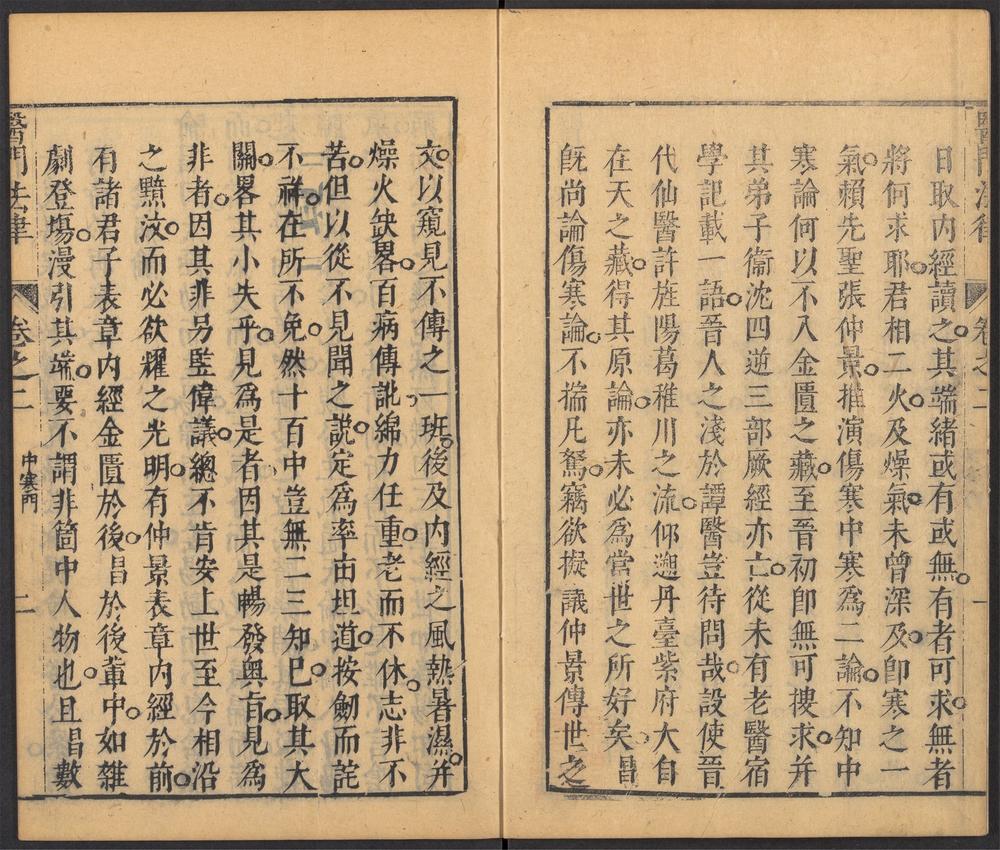 醫門法律
卷之二
一
日取內經讀之其端緒或有或無有者可求無者
將何求耶君相二火及燥氣未曾深及卽寒之一
氣賴先聖張仲景推演傷寒中寒爲二論不知中
寒論何以不入金匱之藏至晉初卽無可搜求并
其弟子衞沈四逆三部厥經亦亡從未有老醫宿
學記載一語晉人之淺於譚醫豈待問哉設使晉
代仙醫許旌陽葛稚川之流仰遡丹臺紫府大自
在天之藏得其原論亦未必爲當世之所好矣昌
旣尚論傷寒論不揣凡駑竊欲擬議仲景傳世之
文以窺見不傳之一班後及內經之風熱暑濕并
燥火缺畧百病傳訛綿力任重老而不休志非不
苦但以從不見聞之說定爲率由坦道按劒而詫
不祥在所不免然十百中豈無二三知巳取其大
關畧其小失乎見爲是者因其是暢發奧旨見爲
非者因其非另竪偉議總不肯安上世至今相沿
之黯汶而必欲耀之光明有仲景表章內經於前
有諸君子表章內經金匱於後昌於後董中如雜
劇登塲漫引其端要不謂非箇中人物也且昌數
醫門法律
卷之二
中寒門
二